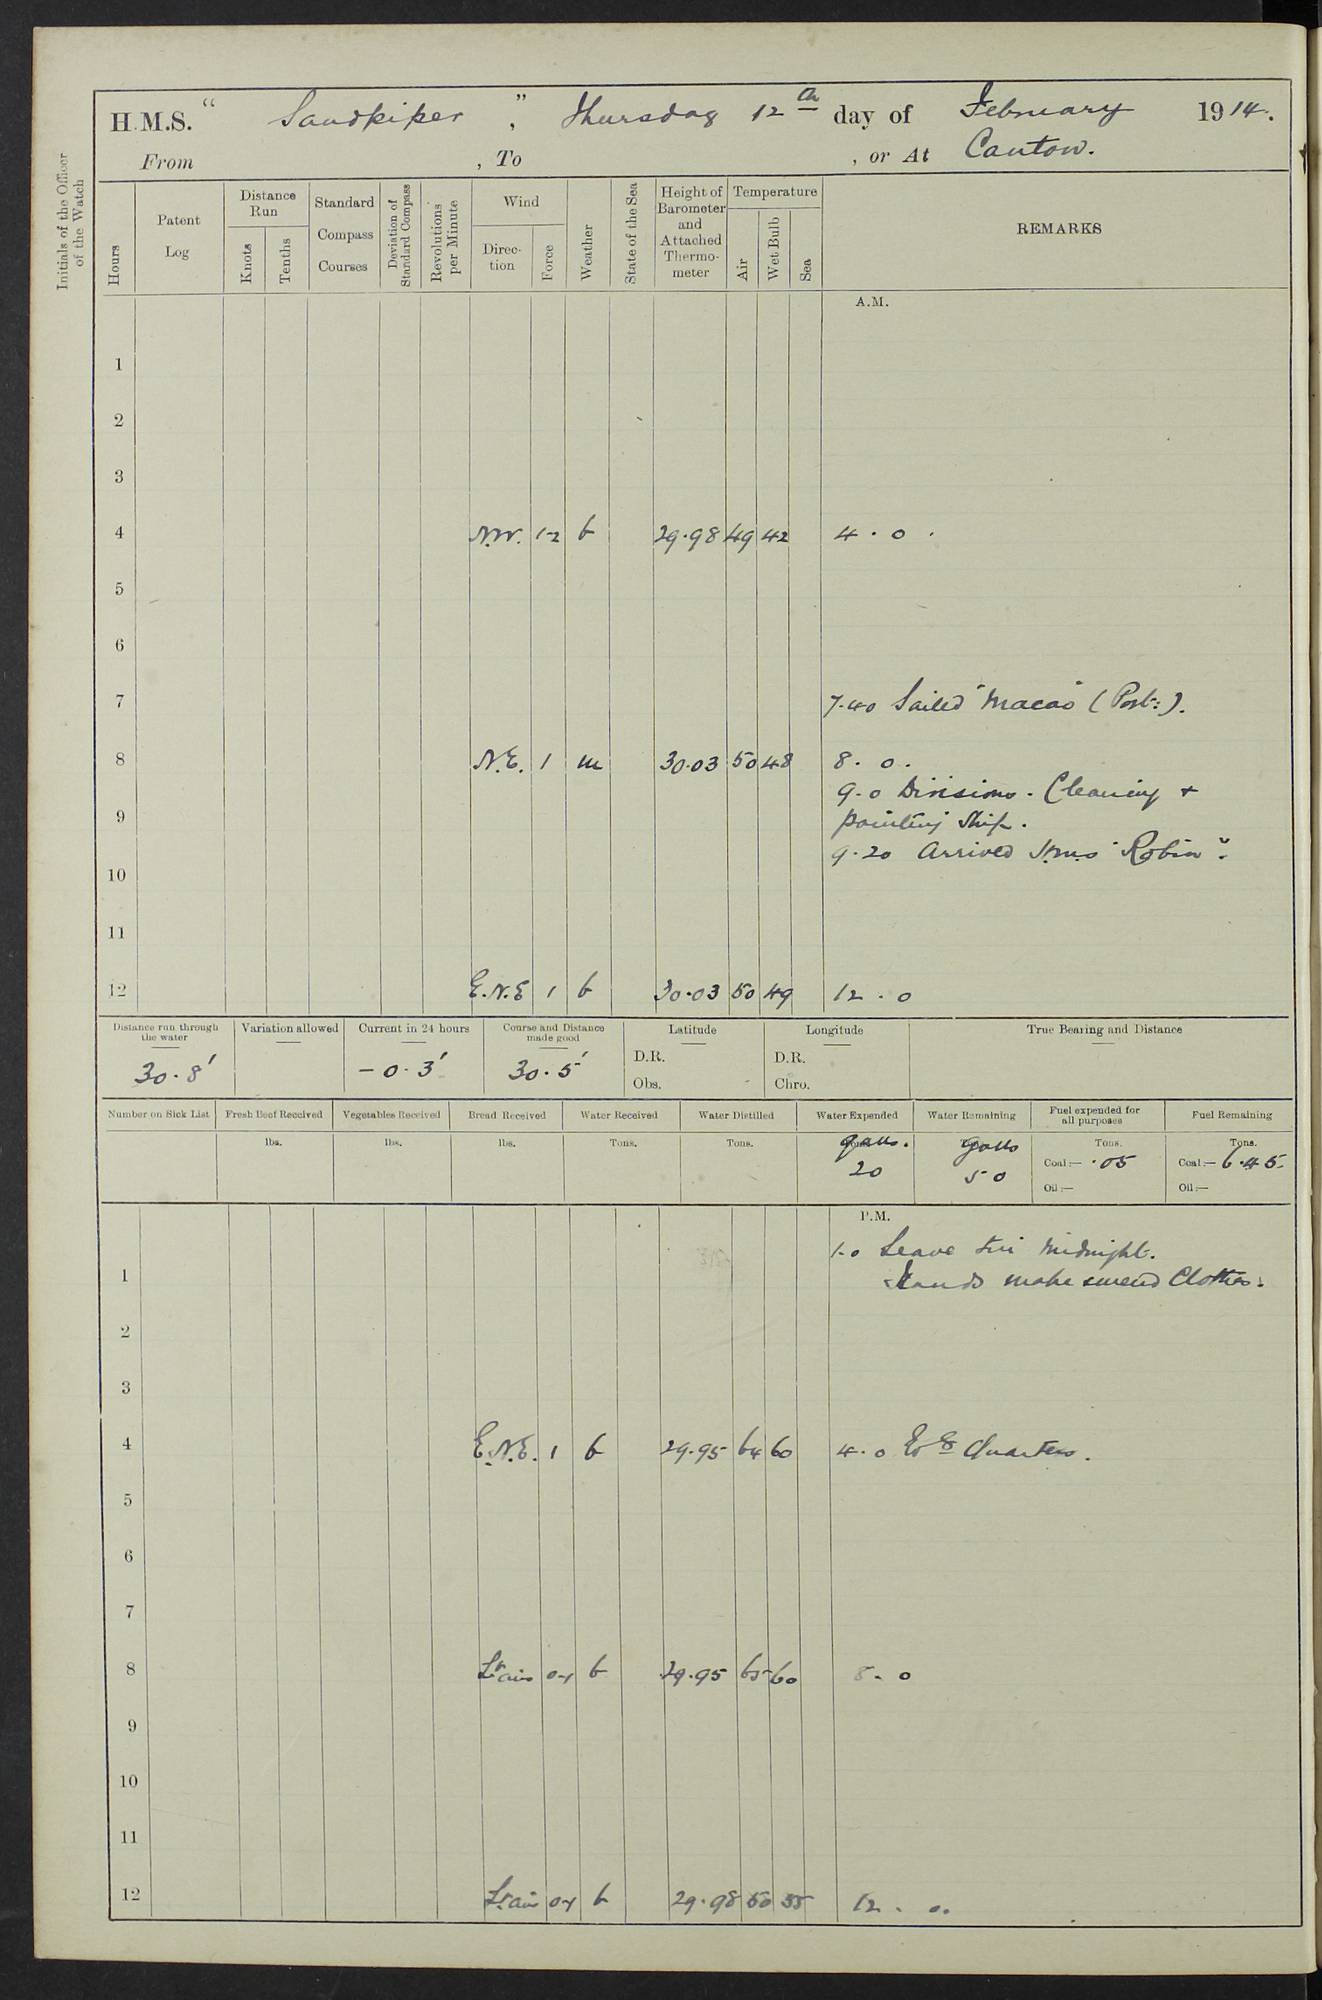 H.M.S. " Sandpiper ", Thursday 12th day of February 1914.
From , To , or At Canton.
Initials of the Officer of the Watch
Hours
Patent Log
Distance Run
Knots
Tenths
Standard Compass Courses
Deviation of Standard Compass
Revolutions per Minute
Wind
Direction
Force
Weather
State of the Sea
Height of Barometer and Attached Thermometer
Temperature
Air
Wet Bulb
Sea
REMARKS
A.M.
1
2
3
4 N.W. 1-2 b 29.98 49 42 4.0.
5
6
7 7.40 Sailed "Macao" (Port:).
8 N.E. 1 m 30.03 50 48 8.0.
9.0 Divisions. Cleaning +
9 painting Ship.
9.20 Arrived H.M.S "Robin".
10
11
12 E.N.E 1 b 30.03 50 49 12.0
Distance run through the water
Variation allowed
Current in 24 hours
Course and Distance made good
Latitude
Longitude
True Bearing and Distance
30.8' -0.3' 30.5'
D.R. D.R.
Obs. Chro.
Number on Sick List
Fresh Beef Received
Vegetables Received
Bread Received
Water Received
Water Distilled
Water Expended
Water Remaining
Fuel expended for all purposes
Fuel Remaining
lbs. lbs. lbs. Tons. Tons. galls. galls Tons. Tons.
20 50 Coal:— .05 Coal:— 6.45
Oil:— Oil:—
P.M.
1.0 Leave till Midnight.
1 Hands make & mend Clothes.
2
3
4 E.N.E. 1 b 29.95 64 60 4.0 Quarters.
5
6
7
8 Lt airs 0-1 b 29.95 65 60 8.0
9
10
11
12 Lt airs 0-1 b 29.98 60 55 12.0.